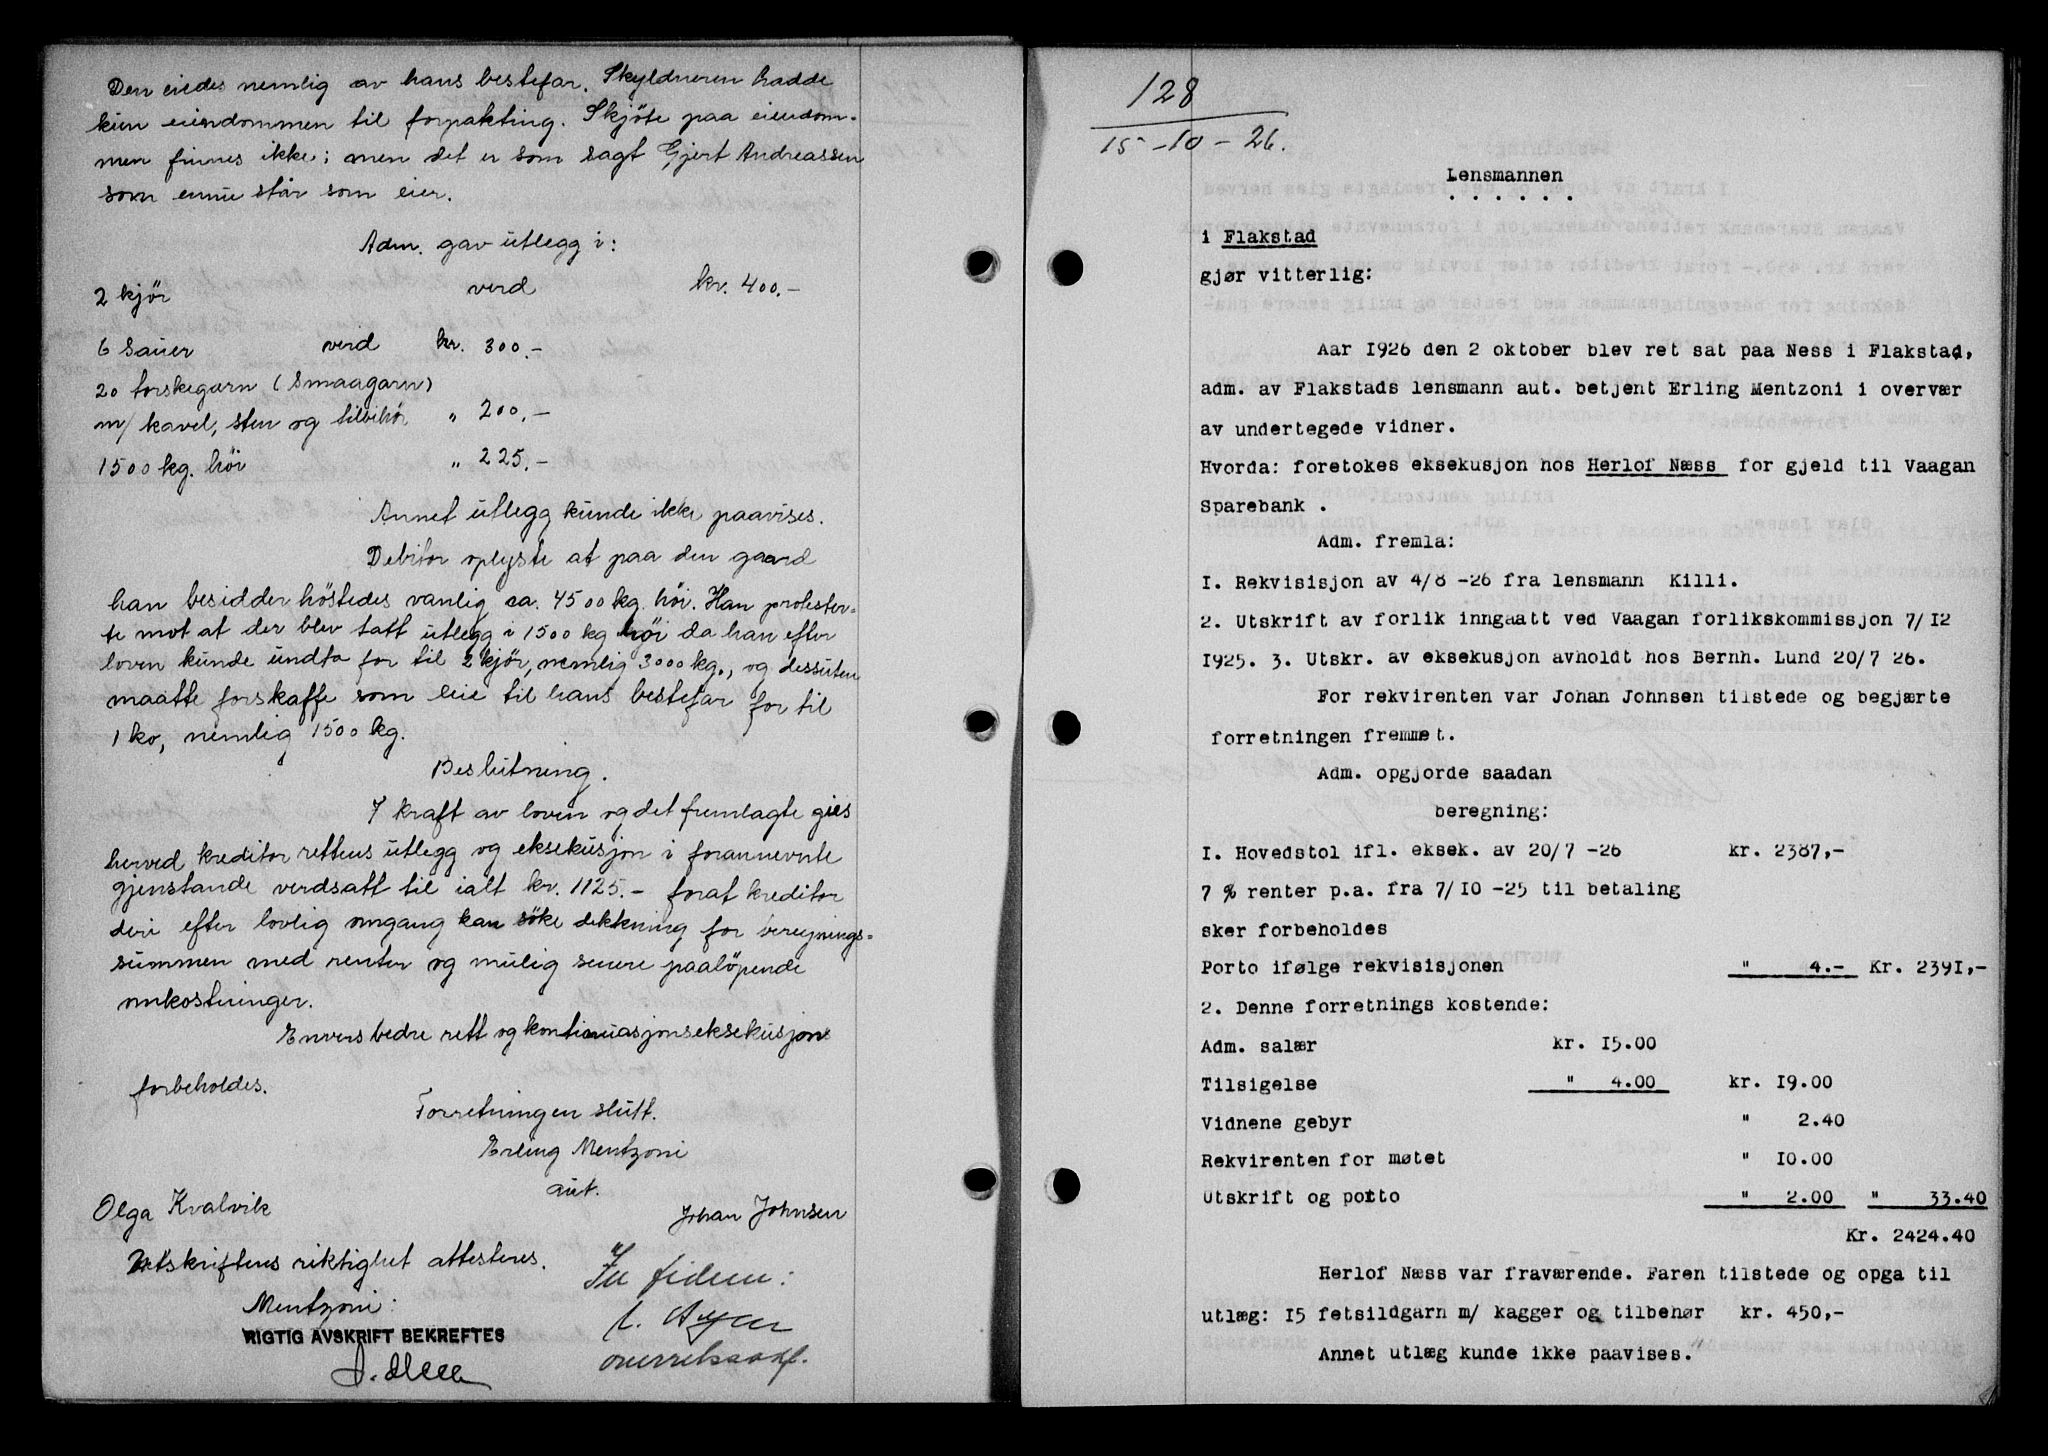 Den eiedes nemlig av hans bestefar. Skyldneren hadde
kun eiendommen til forpakting. Skjöte paa eiendom-
men finnes ikke; men det er som sagt Gjert Andreassen
som ennu står som eier.
Adm. gav utlegg i:
2 kjör verd kr. 400.-
6 sauer verd kr. 300.-
20 torskegarn (Smaagarn)
m/ kavel, sten og tilbihör " 200.-
1500 kg. höi " 225.-
Annet utlegg kunde ikke paavises.
Debitor oplyste at paa den gaard
han besidder höstedes vanlig ca. 4500 kg. höi. Han protester-
te mot at der blev tatt utlegg i 1500 kg höi da han efter
loven kunde undta for til 2 kjör, nemlig 3000 kg., og dessuten
maatte forskaffe som leie til hans bestefar for til
1 ko, nemlig 1500 kg.
Beslutning.
I kraft av loven og det fremlagte gies
herved kreditor rettens utlegg og eksekusjon i forannevnte
gjenstande verdsatt til ialt kr. 1125.- forat kreditor
deri efter lovlig omgang kan söke dekkning for beregnings-
summen med renter og mulig senere paalöpende
omkostninger.
Envers bedre rett og kontinuasjonseksekusjon
forbeholdes.
Forretningen slutt.
Erling Mentzoni
aut.
Olga Kvalvik Johan Johnsen
Utskriftens riktighet attesteres.
Mentzoni:
RIGTIG AVSKRIFT BEKREFTES
In fidem:
128
15-10-26.
Lensmannen
......
i Flakstad
gjør vitterlig:
Aar 1926 den 2 oktober blev ret sat paa Ness i Flakstad,
adm. av Flakstads lensmann aut. betjent Erling Mentzoni i overvær
av undertegede vidner.
Hvorda: foretokes eksekusjon hos Herlof Næss for gjeld til Vaagan
Sparebank .
Adm. fremla:
I. Rekvisisjon av 4/8 -26 fra lensmann Killi.
2. Utskrift av forlik inngaatt ved Vaagan forlikskommissjon 7/12
1925. 3. Utskr. av eksekusjon avholdt hos Bernh. Lund 20/7 26.
For rekvirenten var Johan Johnsen tilstede og begjærte
forretningen fremmet.
Adm. opgjorde saadan
beregning:
I. Hovedstol ifl. eksek. av 20/7 -26 kr. 2387,-
7 % renter p.a. fra 7/10 -25 til betaling
sker forbeholdes
Porto ifølge rekvisisjonen " 4.- Kr. 2391,-
2. Denne forretnings kostende:
Adm. salær kr. 15.00
Tilsigelse " 4.00 kr. 19.00
Vidnene gebyr " 2.40
Rekvirenten for møtet " 10.00
Utskrift og porto " 2.00 " 33.40
Kr. 2424.40
Herlof Næss var fraværende. Faren tilstede og opga til
utlæg: 15 fetsildgarn m/ kagger og tilbehør kr. 450,-
Annet utlæg kunde ikke paavises.